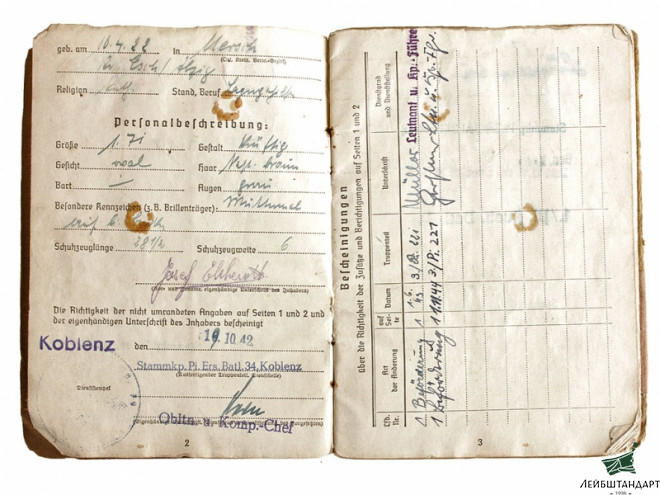 geb. am 10.4.22 in Mersch
(Ort, Kreis, Verw.-Bezirk)
Kr. Esch/Alzig
Religion kath. Stand, Beruf
Personalbeschreibung:
Größe 1.71 Gestalt kräftig
Gesicht oval Haar braun
Bart — Augen grau
Besondere Kennzeichen (z. B. Brillenträger): Muttermal
auf
Schuhzeuglänge 28½ Schuhzeugweite 6
Josef
(Vor- und Zuname, eigenhändige Unterschrift des Inhabers)
Die Richtigkeit der nicht umrandeten Angaben auf Seiten 1 und 2 und
der eigenhändigen Unterschrift des Inhabers bescheinigt
Koblenz den 19.10.42
Stammkp. Pi. Ers. Batl. 34, Koblenz
(Ausfertigender Truppenteil, Dienststelle)
Dienststempel
Obltn. u. Komp.-Chef
2
Bescheinigungen
über die Richtigkeit der Zusätze und Berichtigungen auf Seiten 1 und 2
Lfd. Nr. Art der Änderung auf Seite Datum Truppenteil Unterschrift Dienstgrad und Dienststellung
1 Beförderung 1 1.6.43 3./Pi. 221 Müller Leutnant u. Kp.-Führer
1 Beförderung 1 1.11.44 3/Pi. 221 Ltn. u. Kp. Fhr.
3
ЛЕЙБШТАНДАРТ
– 1991 –